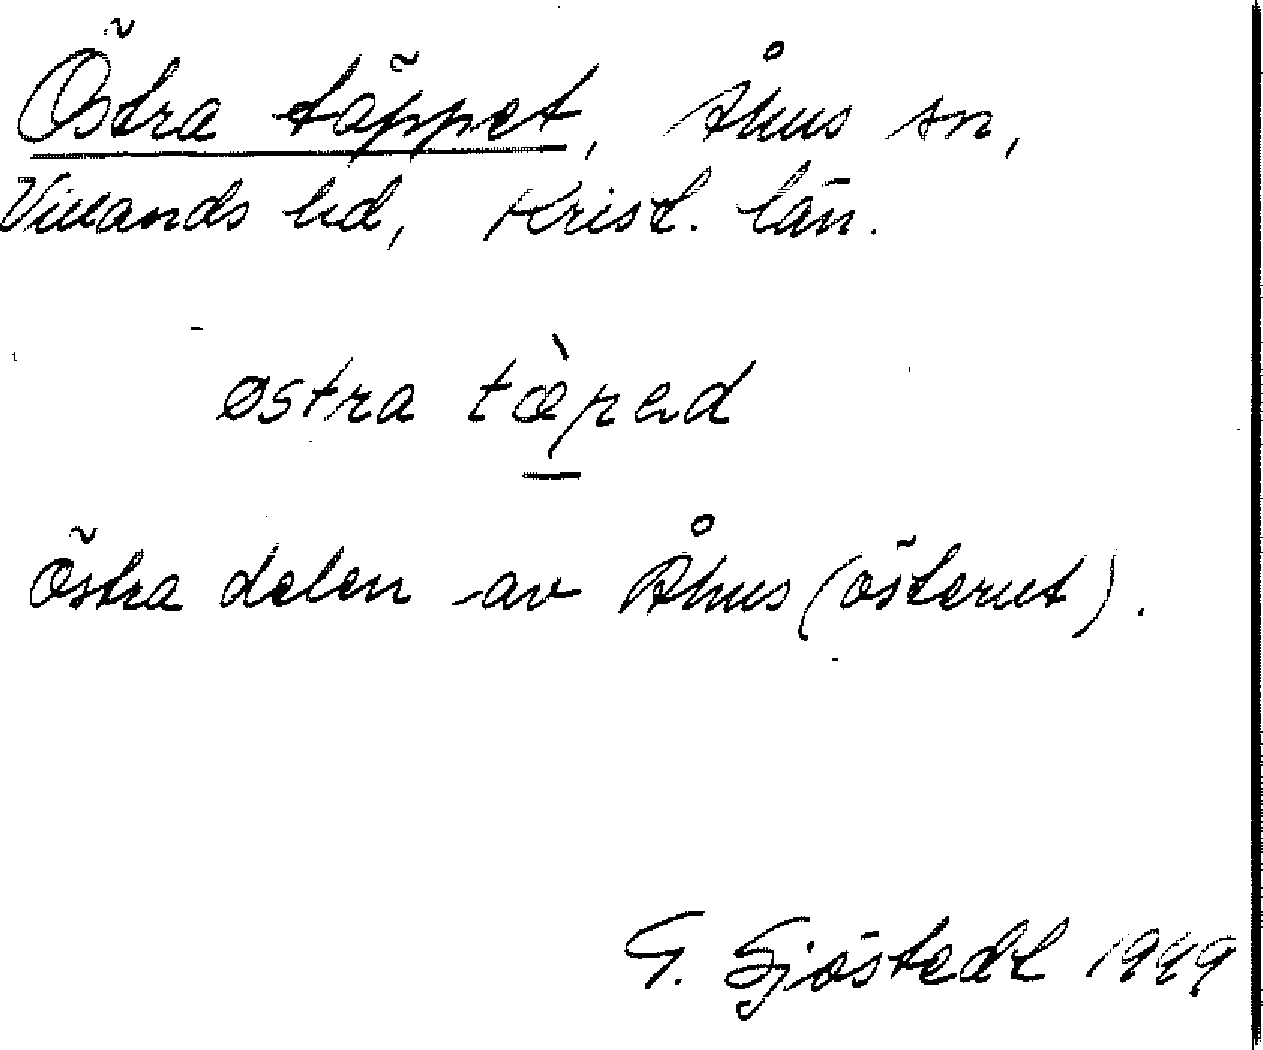 Östra täppet, Åhus sn,
Villands hd, Krist. län.
østra tæ̀ped
Östra delen av Åhus (österut).
G. Sjöstedt 1949